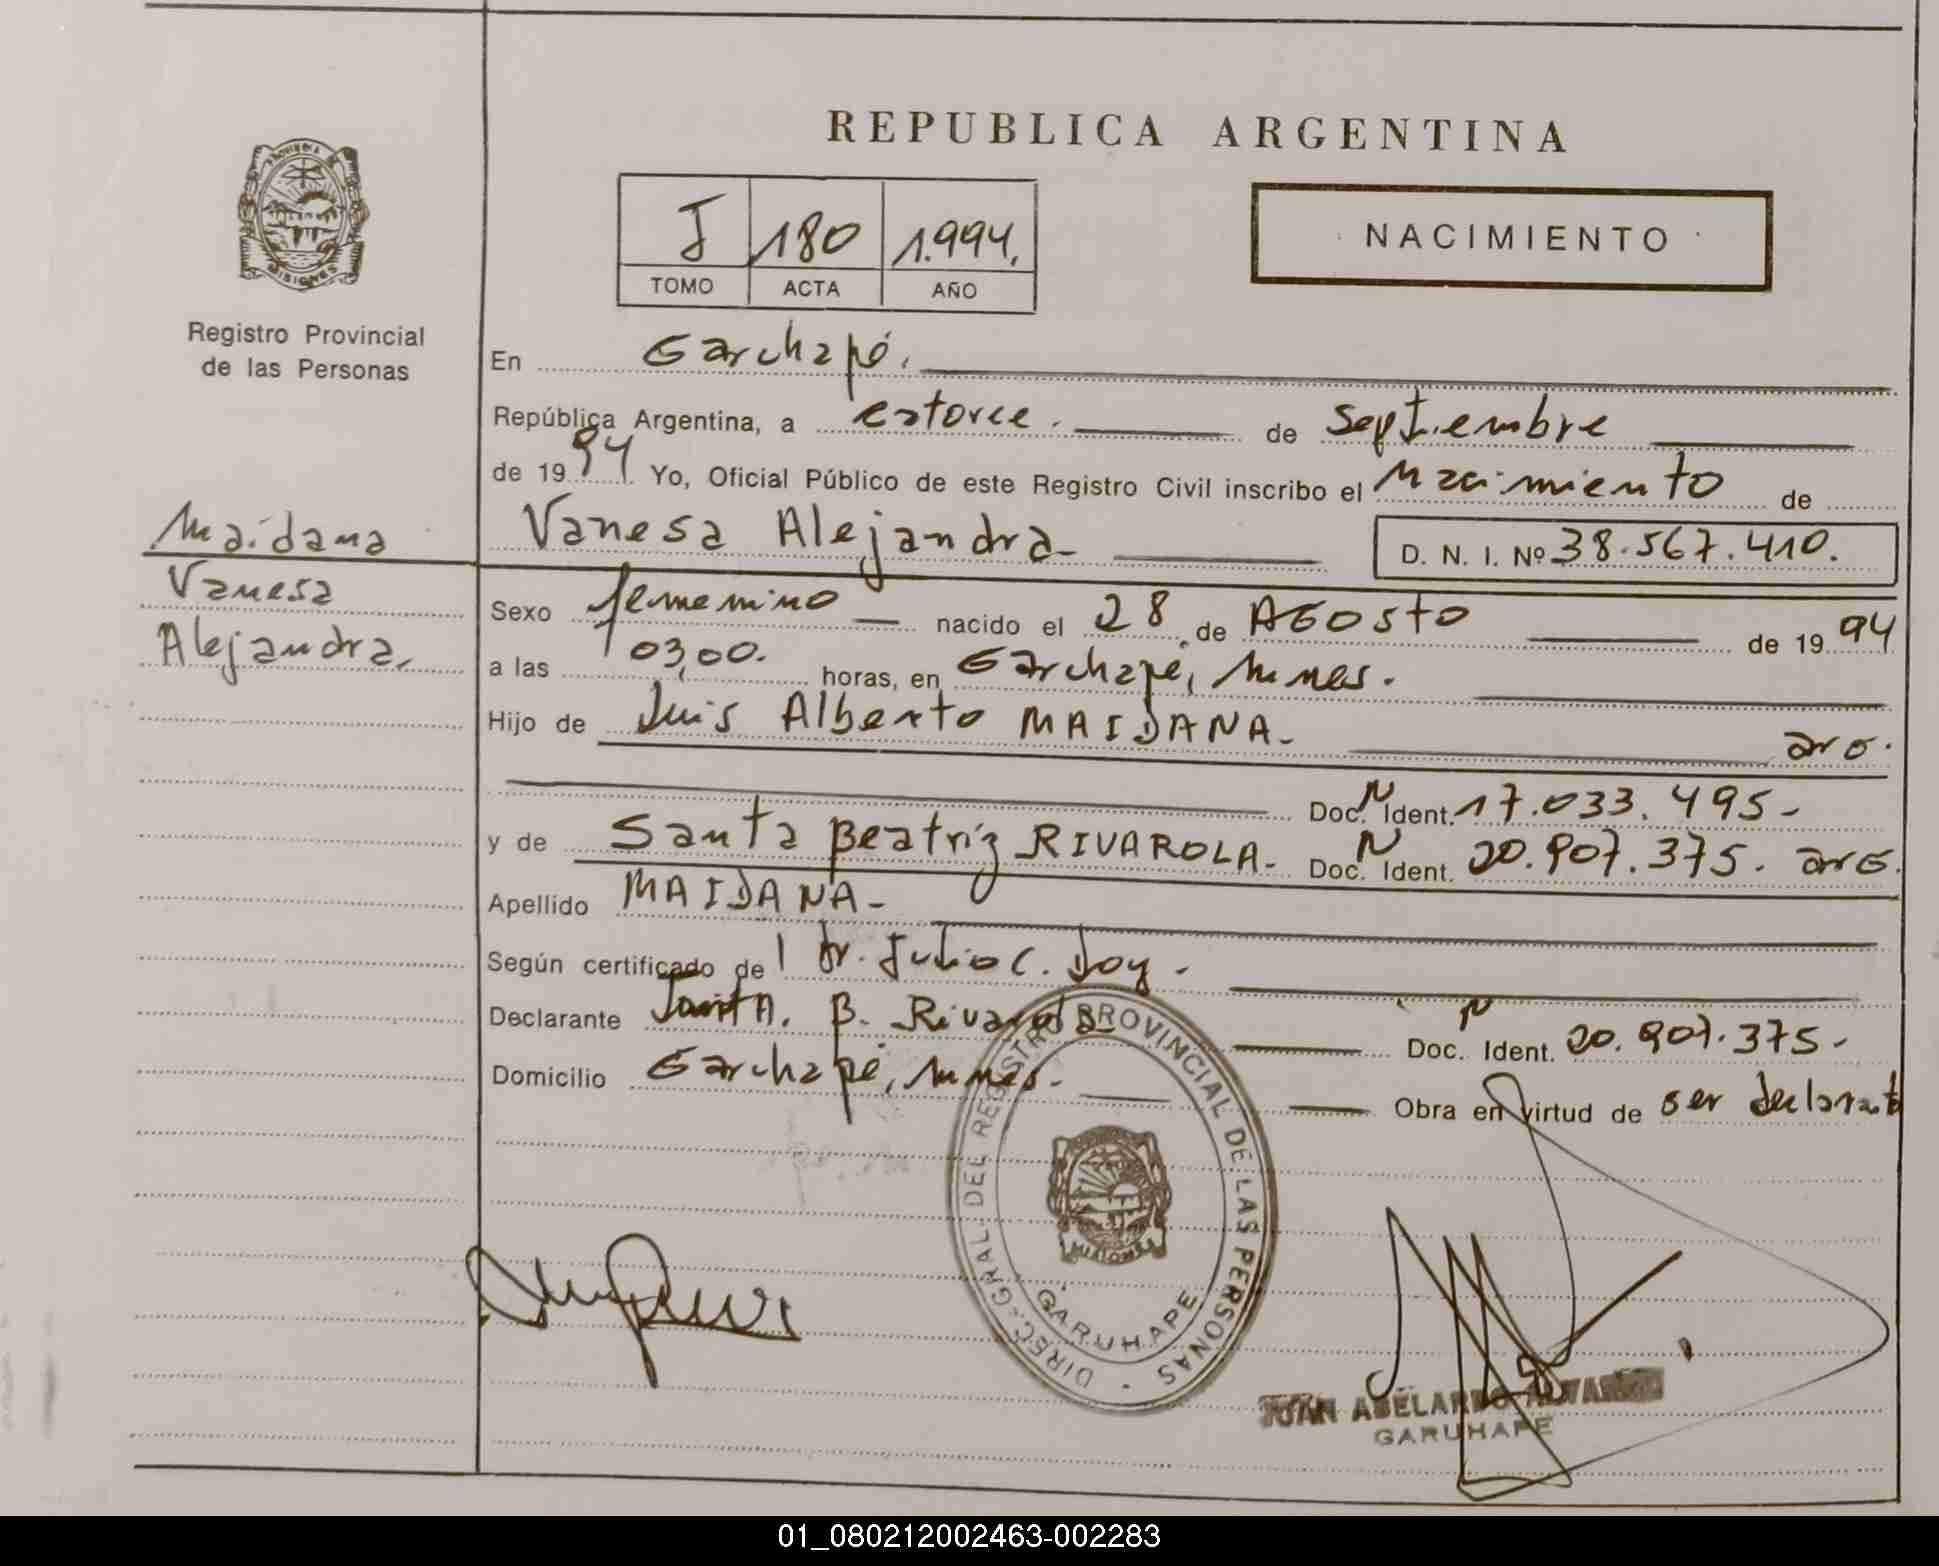 REPUBLICA ARGENTINA
J 180 1.994.
TOMO ACTA AÑO
NACIMIENTO
PROVINCIA DE MISIONES
Registro Provincial
de las Personas
En Garuhapé.
República Argentina, a catorce. de Septiembre
de 1994 Yo, Oficial Público de este Registro Civil inscribo el Nacimiento de
Vanesa Alejandra D. N. I. Nº 38.567.410.
Maidana
Vanesa
Alejandra.
Sexo femenino nacido el 28 de AGOSTO de 1994
a las 03,00. horas, en Garuhapé, Mnes.
Hijo de Luis Alberto MAIDANA arG.
Doc. N Ident. 17.033.495-
y de Santa Beatriz RIVAROLA- Doc. N Ident. 20.907.375. arG.
Apellido MAIDANA-
Según certificado del Dr. Julio C. Doy.
Declarante SantA. B. Rivarola N Doc. Ident. 20.907.375-
Domicilio Garuhapé, Mnes.
Obra en virtud de ser declarante
DIREC. GRAL. DEL REGISTRO PROVINCIAL DE LAS PERSONAS
MISIONES
GARUHAPE
JUAN ABELARDO ALVAREZ
GARUHAPE
01_080212002463-002283